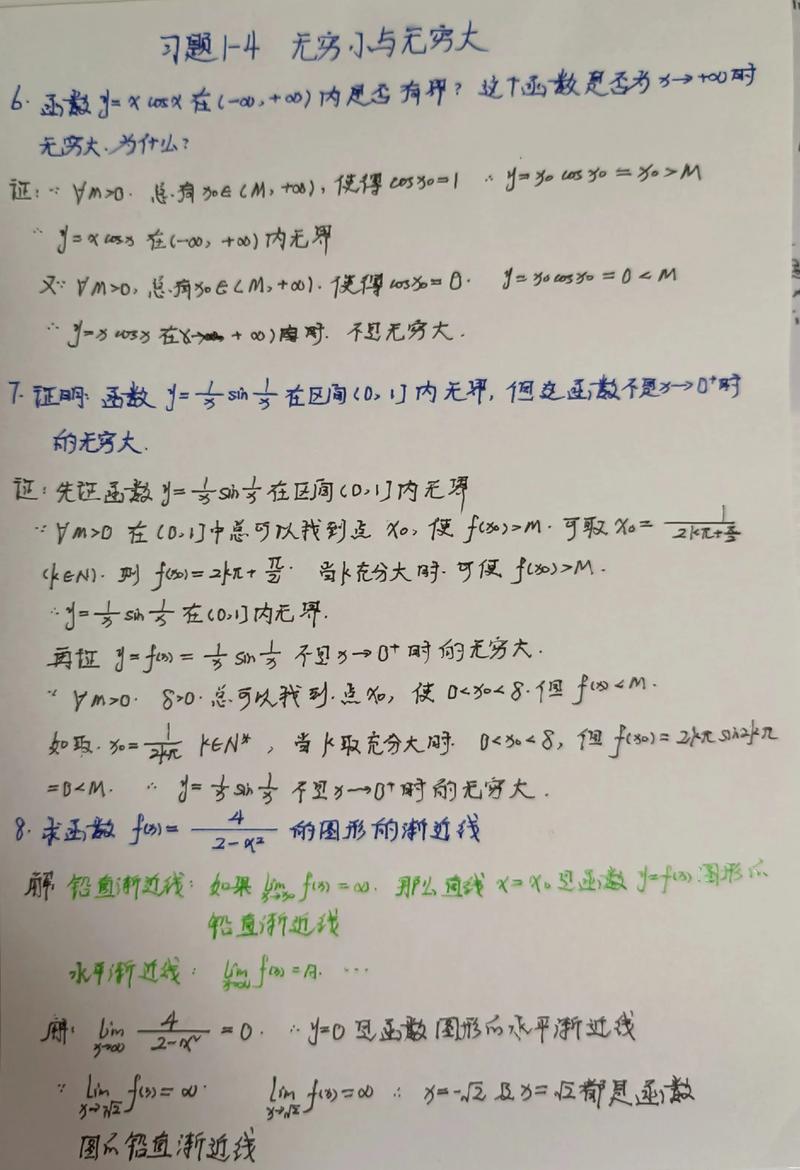 习题1-4 无穷小与无穷大
6. 函数 y=x cosx 在(-∞,+∞)内是否有界? 这个函数是否为 x→+∞时
无穷大.为什么?
证:∵ ∀M>0. 总有x₀∈(M,+∞),使得 cosx₀=1 ∴ y=x₀ cosx₀=x₀>M
∴ y=x cosx 在(-∞,+∞)内无界
又∵ ∀M>0,总有x₀∈(M,+∞).使得 cosx₀=0. y=x₀cosx₀=0<M
∴ y=x cosx 在x→+∞)时. 不是无穷大.
7. 证明: 函数 y=1/x sin 1/x 在区间(0,1]内无界,但这函数不是x→0⁺时
的无穷大.
证:先证函数 y=1/x sin 1/x 在区间(0,1]内无界
∵ ∀M>0 在(0,1]中总可以找到点 x₀,使 f(x₀)>M.可取 x₀=1/(2kπ+π/2)
(k∈N).则 f(x₀)=2kπ+π/2. 当k充分大时.可使 f(x₀)>M.
∴ y=1/x sin 1/x 在(0,1]内无界.
再证 y=f(x)=1/x sin 1/x 不是x→0⁺时的无穷大.
∵ ∀M>0. δ>0.总可以找到.点x₀,使 0<x₀<δ.但 f(x)<M.
如取. x₀=1/2kπ k∈N*,当k取充分大时. 0<x₀<δ,但 f(x₀)=2kπ sin2kπ
=0<M. ∴ y=1/x sin 1/x 不是x→0⁺时的无穷大.
8. 求函数 f(x)=4/(2-x²) 的图形的渐近线
解 铅直渐近线: 如果 lim x→x₀ f(x)=∞. 那么直线 x=x₀是函数 y=f(x)图形的
铅直渐近线
水平渐近线: lim x→∞ f(x)=A. ...
解: lim x→∞ 4/(2-x²)=0. ∴ y=0是函数图形的水平渐近线
∵ lim f(x)=∞. lim f(x)=∞ ∴ x=-√2 及 x=√2都是函数
图的铅直渐近线